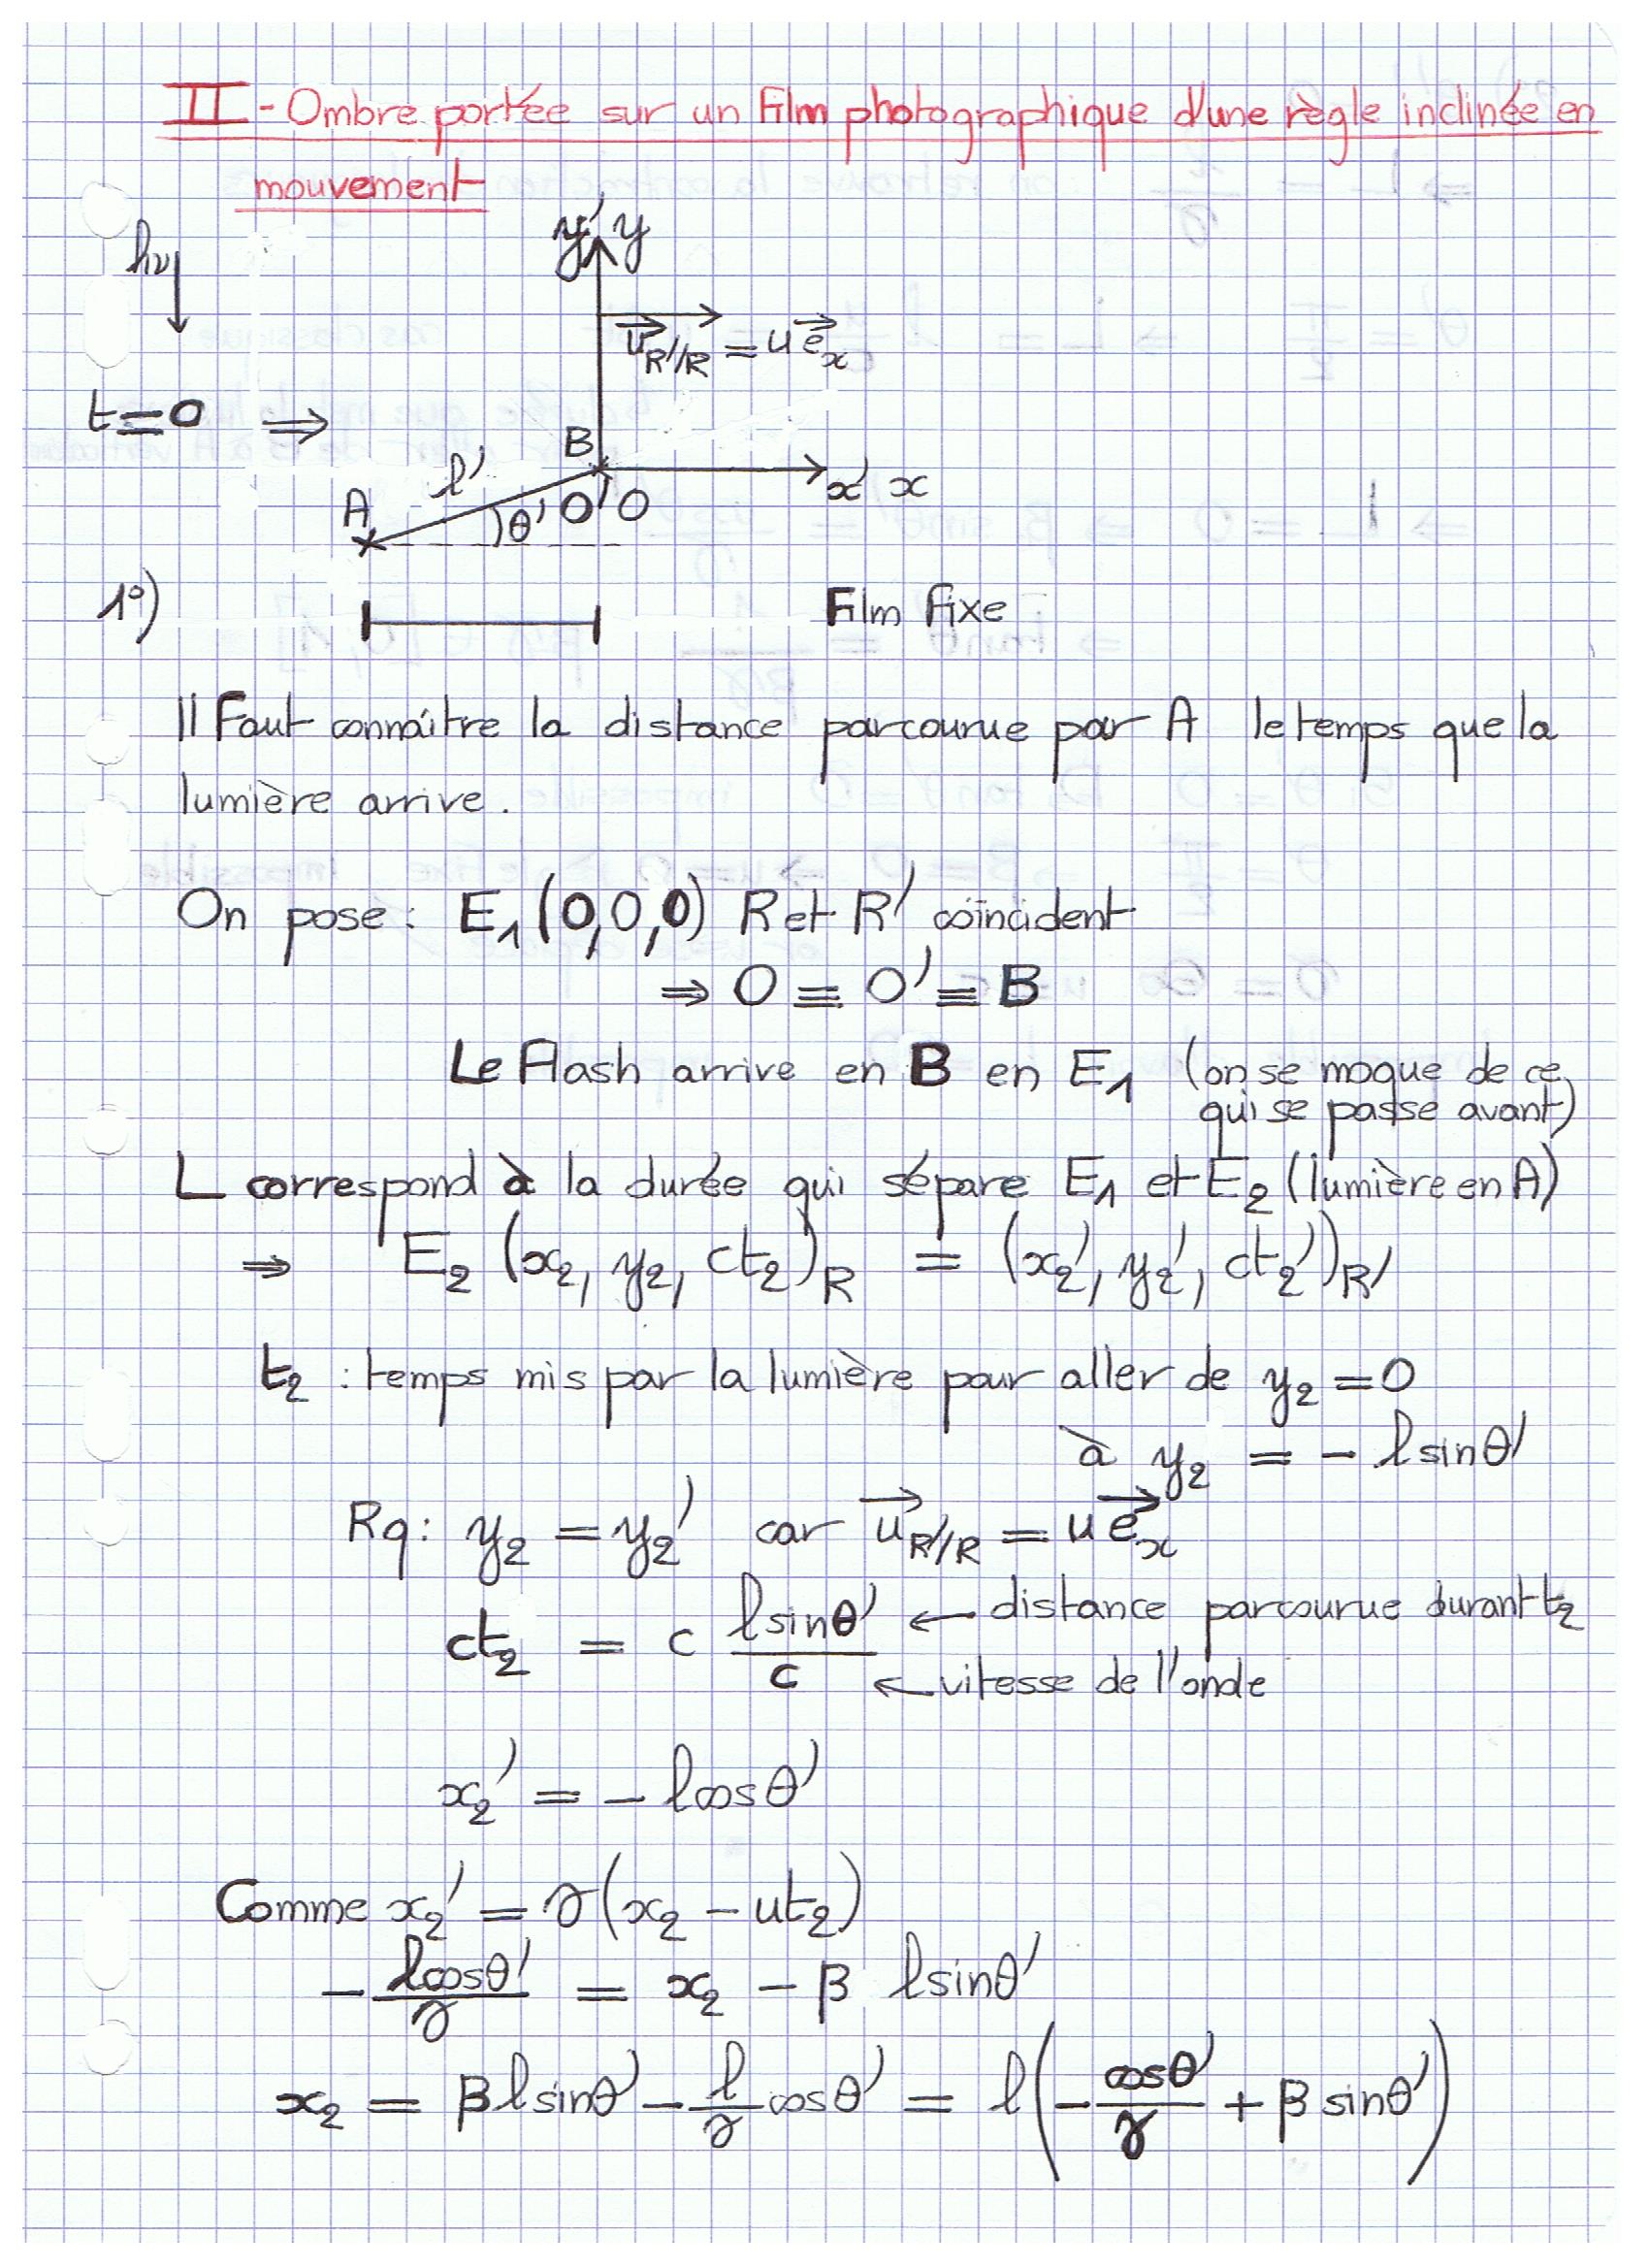 II - Ombre portée sur un film photographique d'une règle inclinée en
mouvement
hν
y' y
u⃗R'/R = u e⃗x
t=0 ⇒
B
l'
x' x
A
θ'
O' O
1°)
Film fixe
Il faut connaître la distance parcourue par A le temps que la
lumière arrive.
On pose : E₁ (0,0,0) R et R' coïncident
⇒ O ≡ O' ≡ B
Le flash arrive en B en E₁ (on se moque de ce
qui se passe avant)
L correspond à la durée qui sépare E₁ et E₂ (lumière en A)
⇒ E₂ (x₂, y₂, ct₂)R = (x₂', y₂', ct₂')R'
t₂ : temps mis par la lumière pour aller de y₂ = 0
à y₂ = - l sinθ'
Rq : y₂ = y₂' car u⃗R'/R = u e⃗x
ct₂ = c l sinθ' / c ← distance parcourue durant t₂
← vitesse de l'onde
x₂' = - l cosθ'
Comme x₂' = γ(x₂ - ut₂)
- l cosθ' / γ = x₂ - β l sinθ'
x₂ = β l sinθ' - l/γ cosθ' = l(- cosθ'/γ + β sinθ')